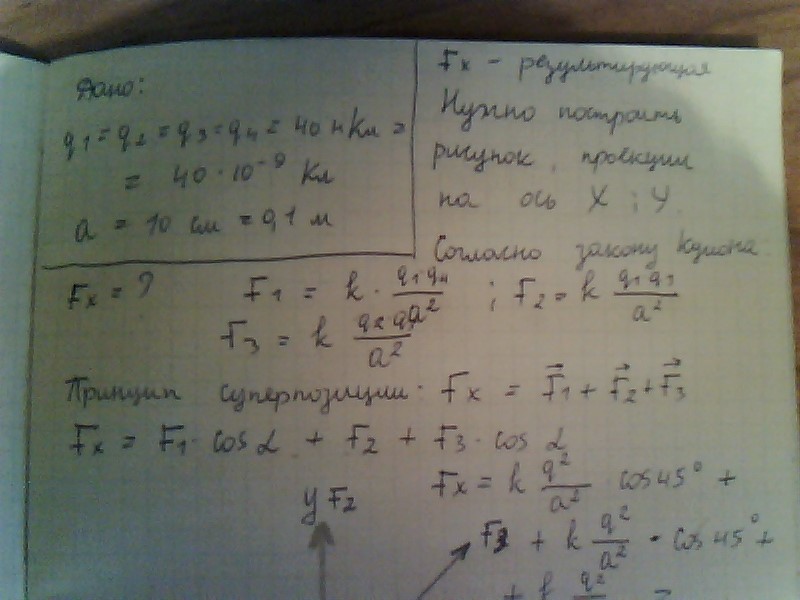 Дано:
q1 = q2 = q3 = q4 = 40 нКл =
= 40 · 10⁻⁹ Кл
a = 10 см = 0,1 м
Fx – результирующая
Нужно построить
рисунок, проекции
на ось X и Y.
Согласно закону Кулона
Fx = ? F1 = k · q1q4/a² ; F2 = k q1q3/a²
F3 = k q2q1/a²
Принцип суперпозиции: Fx = F⃗1 + F⃗2 + F⃗3
Fx = F1 · cos α + F2 + F3 · cos α
Fx = k q²/a² cos 45° +
+ k q²/a² · cos 45° +
+ k q² =
y F2
F3